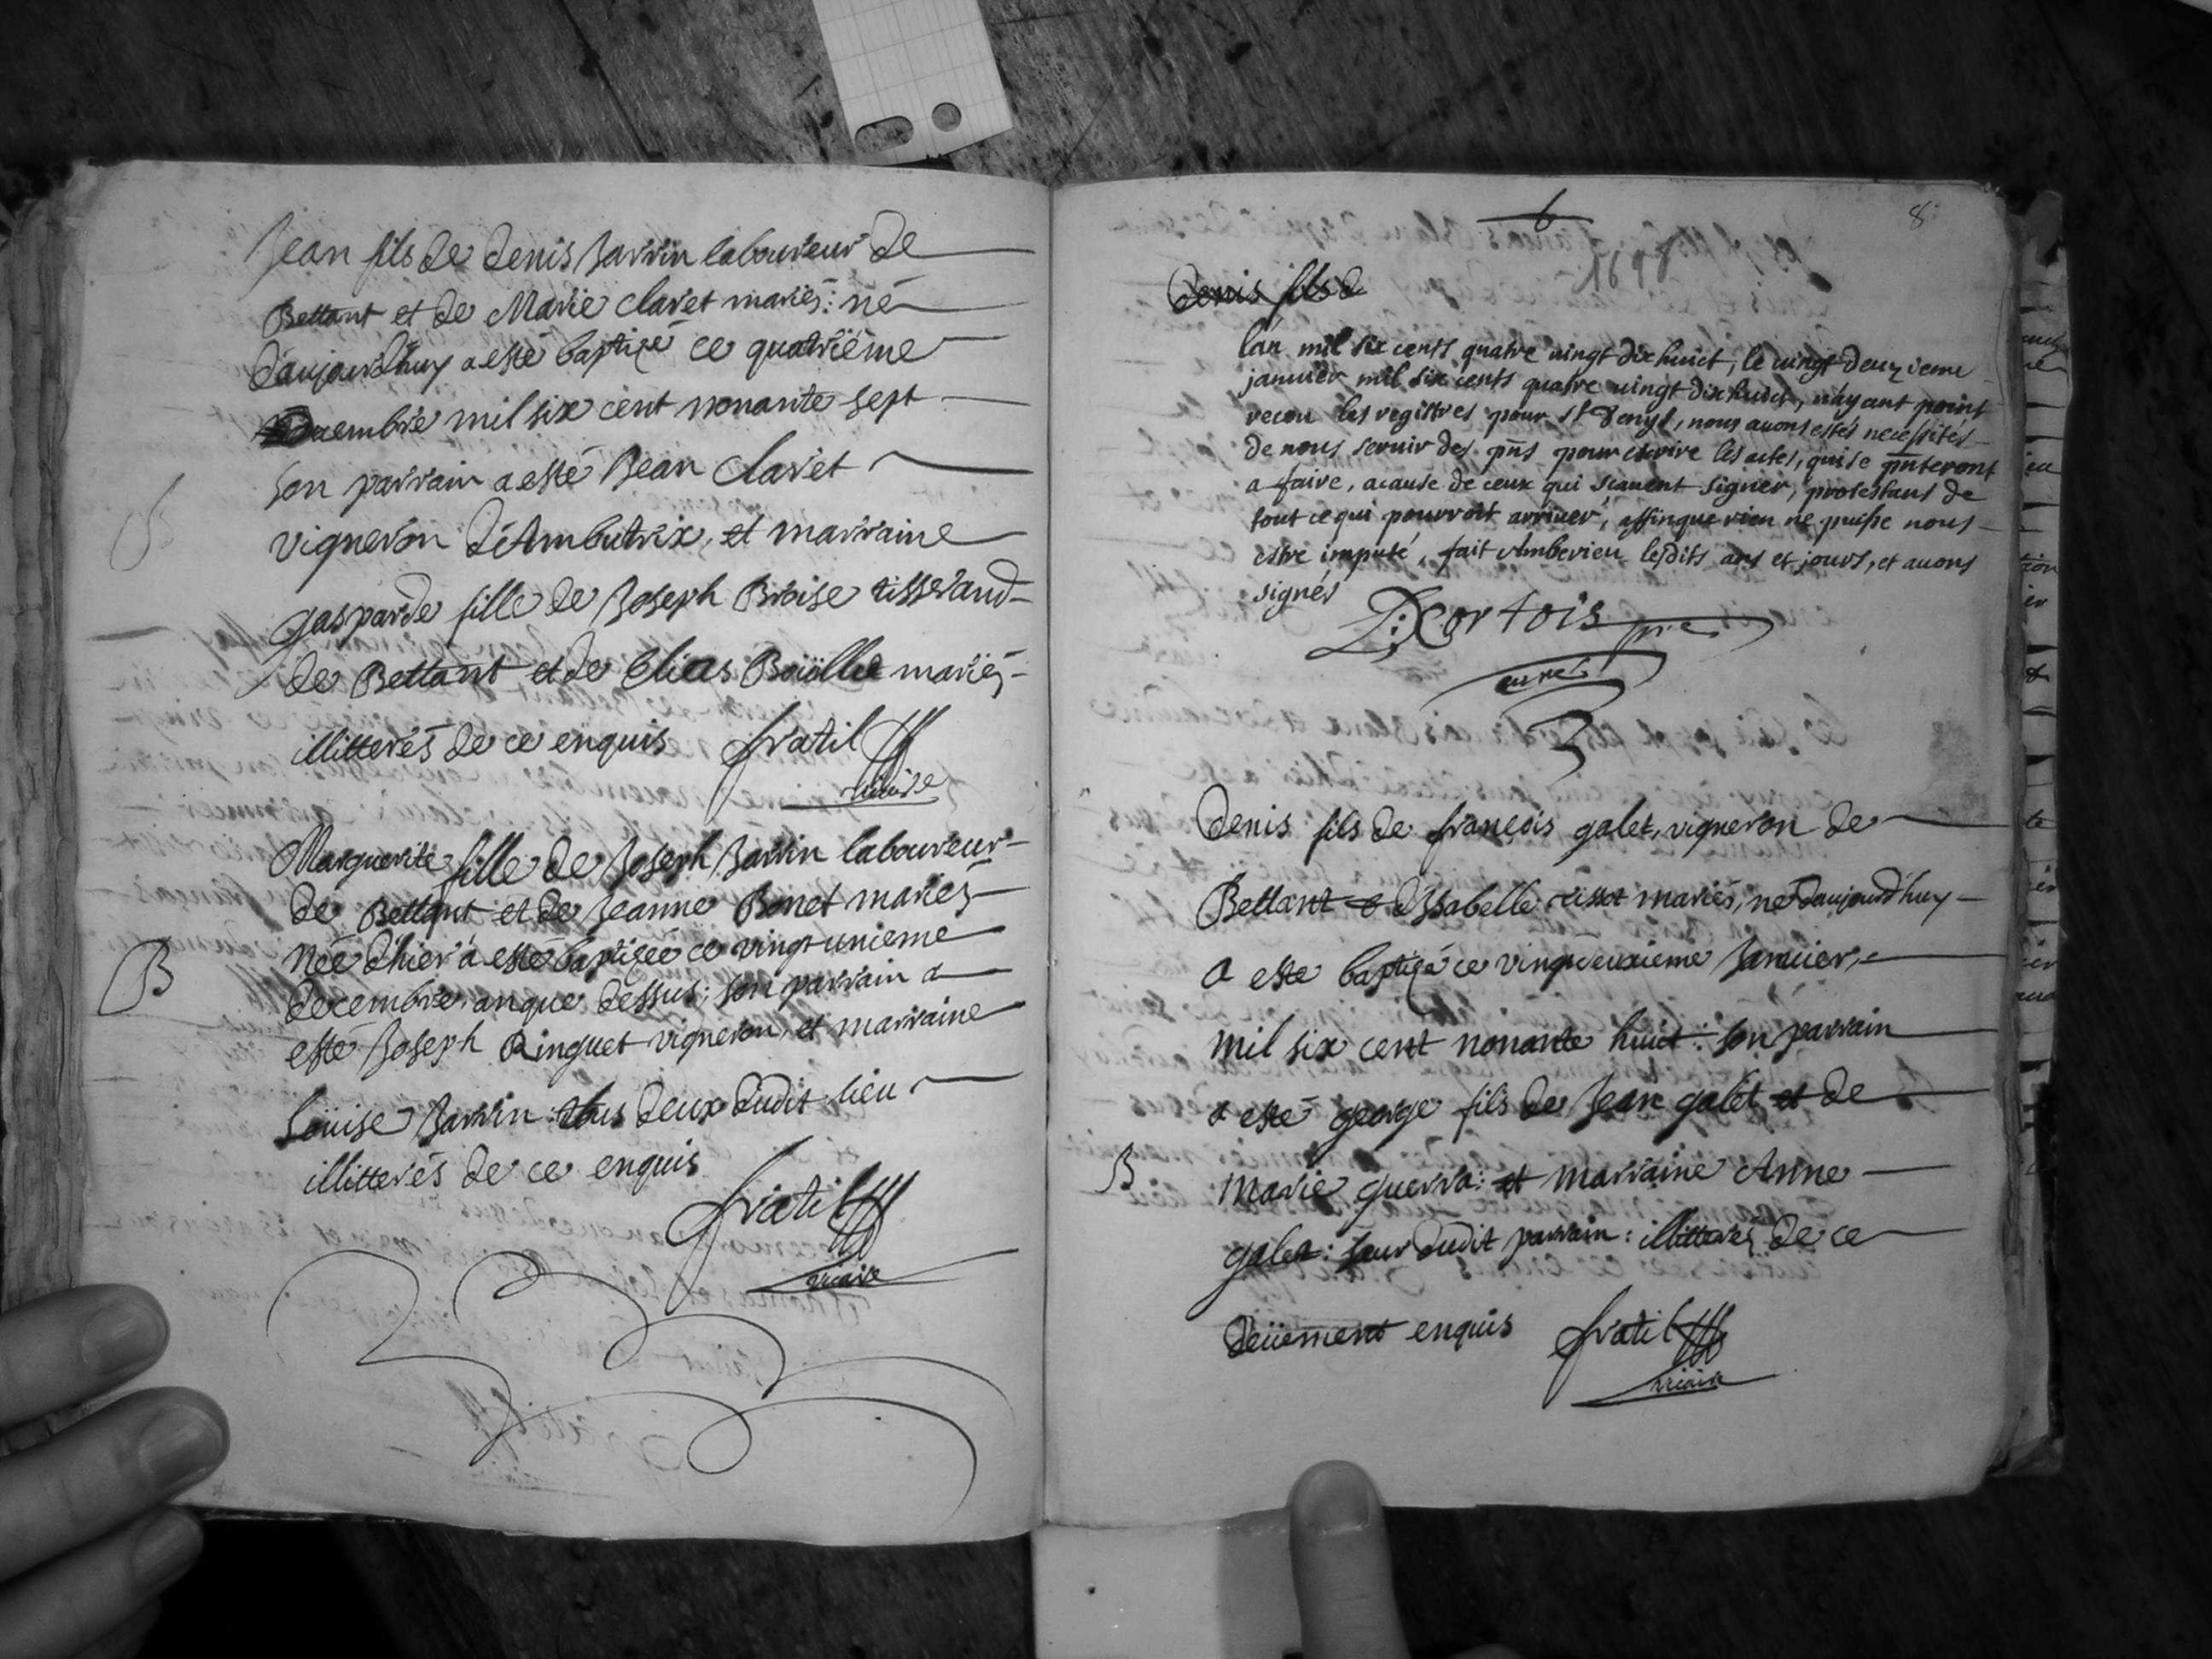 Jean fils de denis Jarrin laboureur de
Bettant et de Marie claret mariés: né
d'aujourdhuy a esté baptizé ce quatriéme
decembre mil six cent nonante sept
son parrain a esté Jean claret
vigneron d'Ambutrix, et marraine
gasparde fille de Joseph Broise tisserand
de Bettant et de Elias mariés
illitterés de ce enquis fratil
vicaire
Marguerite fille de Joseph Jarrin laboureur
B
de Bettant et de Jeanne Bonet mariés
Née d'hier a esté baptizée ce vingt unieme
decembre an que dessus; son parrain a
esté Joseph Ringuet vigneron, et marraine
Loüise Jarrin: tous deux dudit lieu
illitterés de ce enquis
fratil
vicaire
6
8
1698
Denis fils d
l'an mil six cents quatre vingt dix huict, le vingt deuzieme
janvier mil six cents quatre vingt dix huict, n'ayant point
receu les registres pour st Denys, nous avons estés necessités
de nous servir des pñs pour escrire les actes, qui se pñteront
a faire, a cause de ceux qui scavent signer, protestans de
tout ce qui pourroit arriver, affinque rien ne puisse nous
estre imputé, fait Amberieu lesdits ans et jours, et avons
signés
curé
Denis fils de françois galet, vigneron de
Bettant & d'Isabelle tissot mariés, né d'aujourd'huy
a esté baptizé ce vingtdeuxieme Janvier,
mil six cent nonante huict: son parrain
a esté george fils de Jean galet et de
B
Marie guerra: et marraine Anne
galet: sœur dudit parrain: illitterés de ce
deüement enquis fratil
vicaire